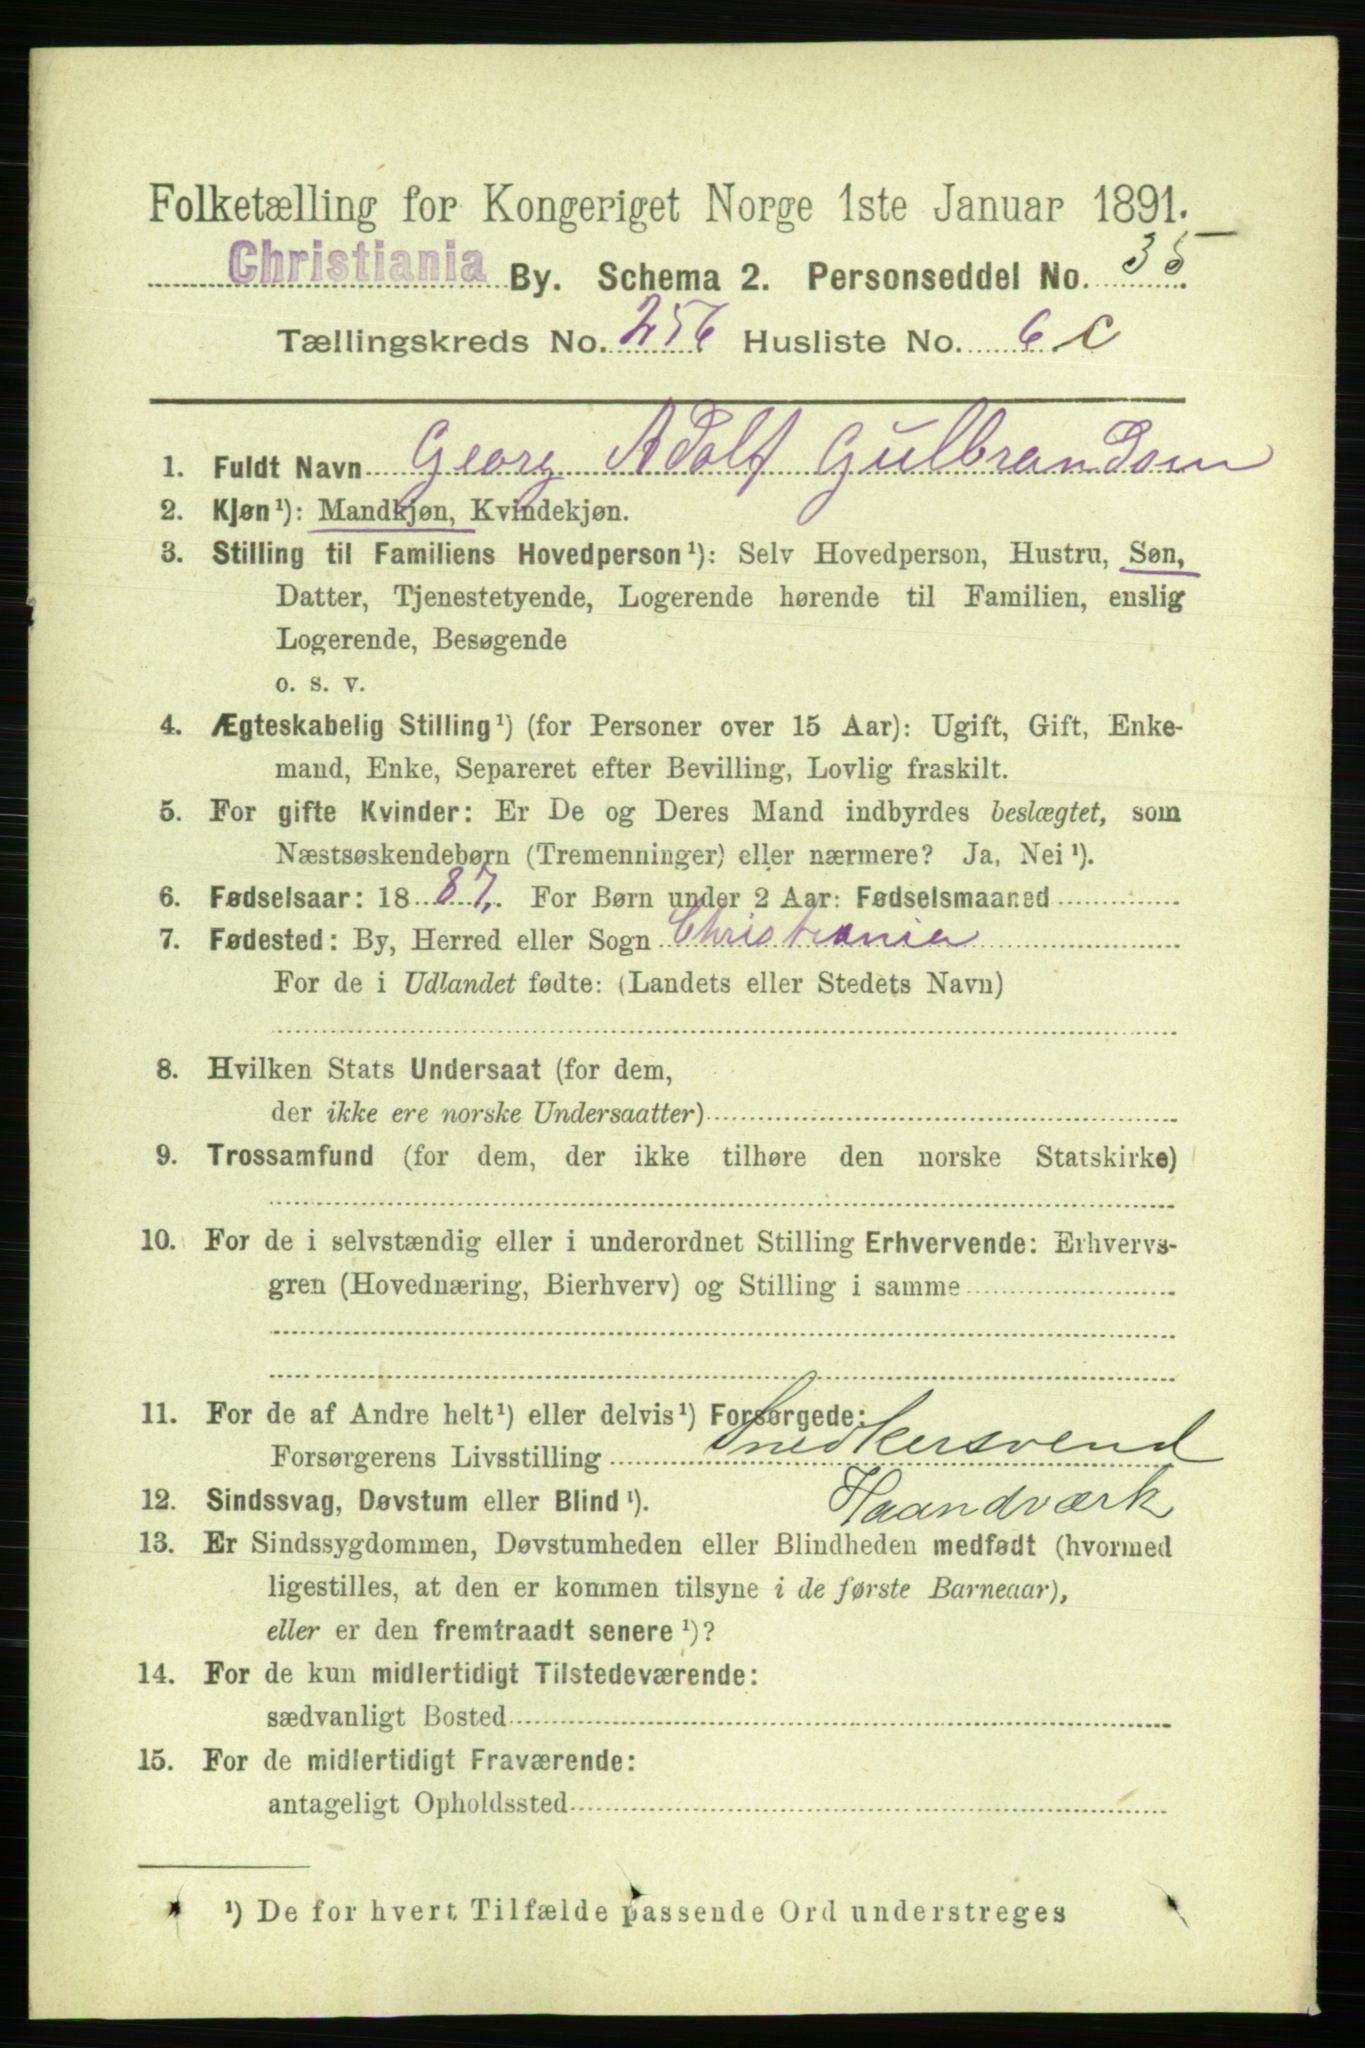 Folketælling for Kongeriget Norge 1ste Januar 1891.
Christiania By. Schema 2. Personseddel No. 35
Tællingskreds No. 256 Husliste No. 6 c
1. Fuldt Navn Georg Adolf Gulbrandsen
2. Kjøn ¹): Mandkjøn, Kvindekjøn.
3. Stilling til Familiens Hovedperson ¹): Selv Hovedperson, Hustru, Søn,
Datter, Tjenestetyende, Logerende hørende til Familien, enslig
Logerende, Besøgende
o. s. v.
4. Ægteskabelig Stilling ¹) (for Personer over 15 Aar): Ugift, Gift, Enke-
mand, Enke, Separeret efter Bevilling, Lovlig fraskilt.
5. For gifte Kvinder: Er De og Deres Mand indbyrdes beslægtet, som
Næstsøskendebørn (Tremenninger) eller nærmere? Ja, Nei ¹).
6. Fødselsaar: 1887. For Børn under 2 Aar: Fødselsmaaned
7. Fødested: By, Herred eller Sogn Christiania
For de i Udlandet fødte: (Landets eller Stedets Navn)
8. Hvilken Stats Undersaat (for dem,
der ikke ere norske Undersaatter)
9. Trossamfund (for dem, der ikke tilhøre den norske Statskirke)
10. For de i selvstændig eller i underordnet Stilling Erhvervende: Erhvervs-
gren (Hovednæring, Bierhverv) og Stilling i samme
11. For de af Andre helt ¹) eller delvis ¹) Forsørgede:
Forsørgerens Livsstilling Snedkersvend
12. Sindssvag, Døvstum eller Blind ¹). Haandværk
13. Er Sindssygdommen, Døvstumheden eller Blindheden medfødt (hvormed
ligestilles, at den er kommen tilsyne i de første Barneaar),
eller er den fremtraadt senere ¹)?
14. For de kun midlertidigt Tilstedeværende:
sædvanligt Bosted
15. For de midlertidigt Fraværende:
antageligt Opholdssted
¹) De for hvert Tilfælde passende Ord understreges